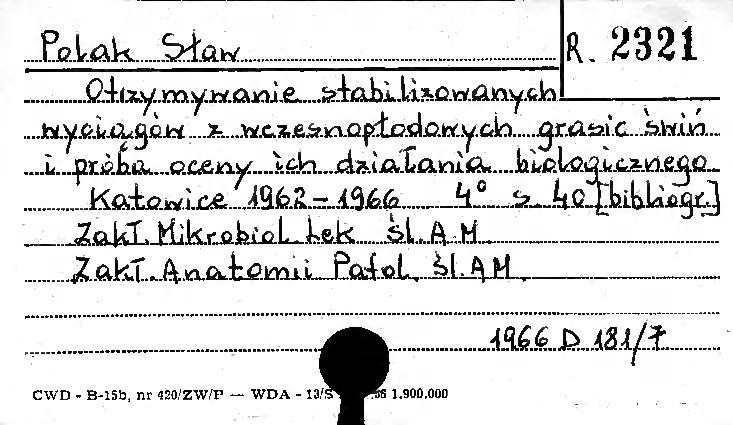 Polak Sław
R. 2321
Otrzymywanie stabilizowanych
wyciągów z wczesnopłodowych grasic świń
i próba oceny ich działania biologicznego
Katowice 1962-1966 4° s. 40 [bibliogr.]
Zakł. Mikrobiol Lek Śl. A M
Zakł. Anatomii Patol. Śl. AM
1966 D 181/7
CWD - B-15b, nr 420/ZW/P — WDA - 13/S 66 1.900.000